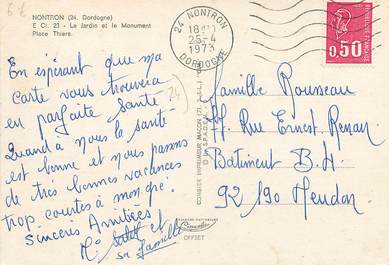 67
NONTRON (24. Dordogne)
E Cl. 23 - Le Jardin et le Monument
Place Thiers.
24 NONTRON
18H
25-4
1973
DORDOGNE
0,50
En espérant que ma
carte vous trouvera
en parfaite santé.
Quand à nous la santé
est bonne et nous passons
de très bonnes vacances
trop courtes à mon gré.
Sincères Amitiées
et
sa famille
24
COMBIER IMPRIMEUR MACON
OFFSET
Famille Rousseau
Rue Ernest Renan
Batiment B.H.
92 190 Meudon